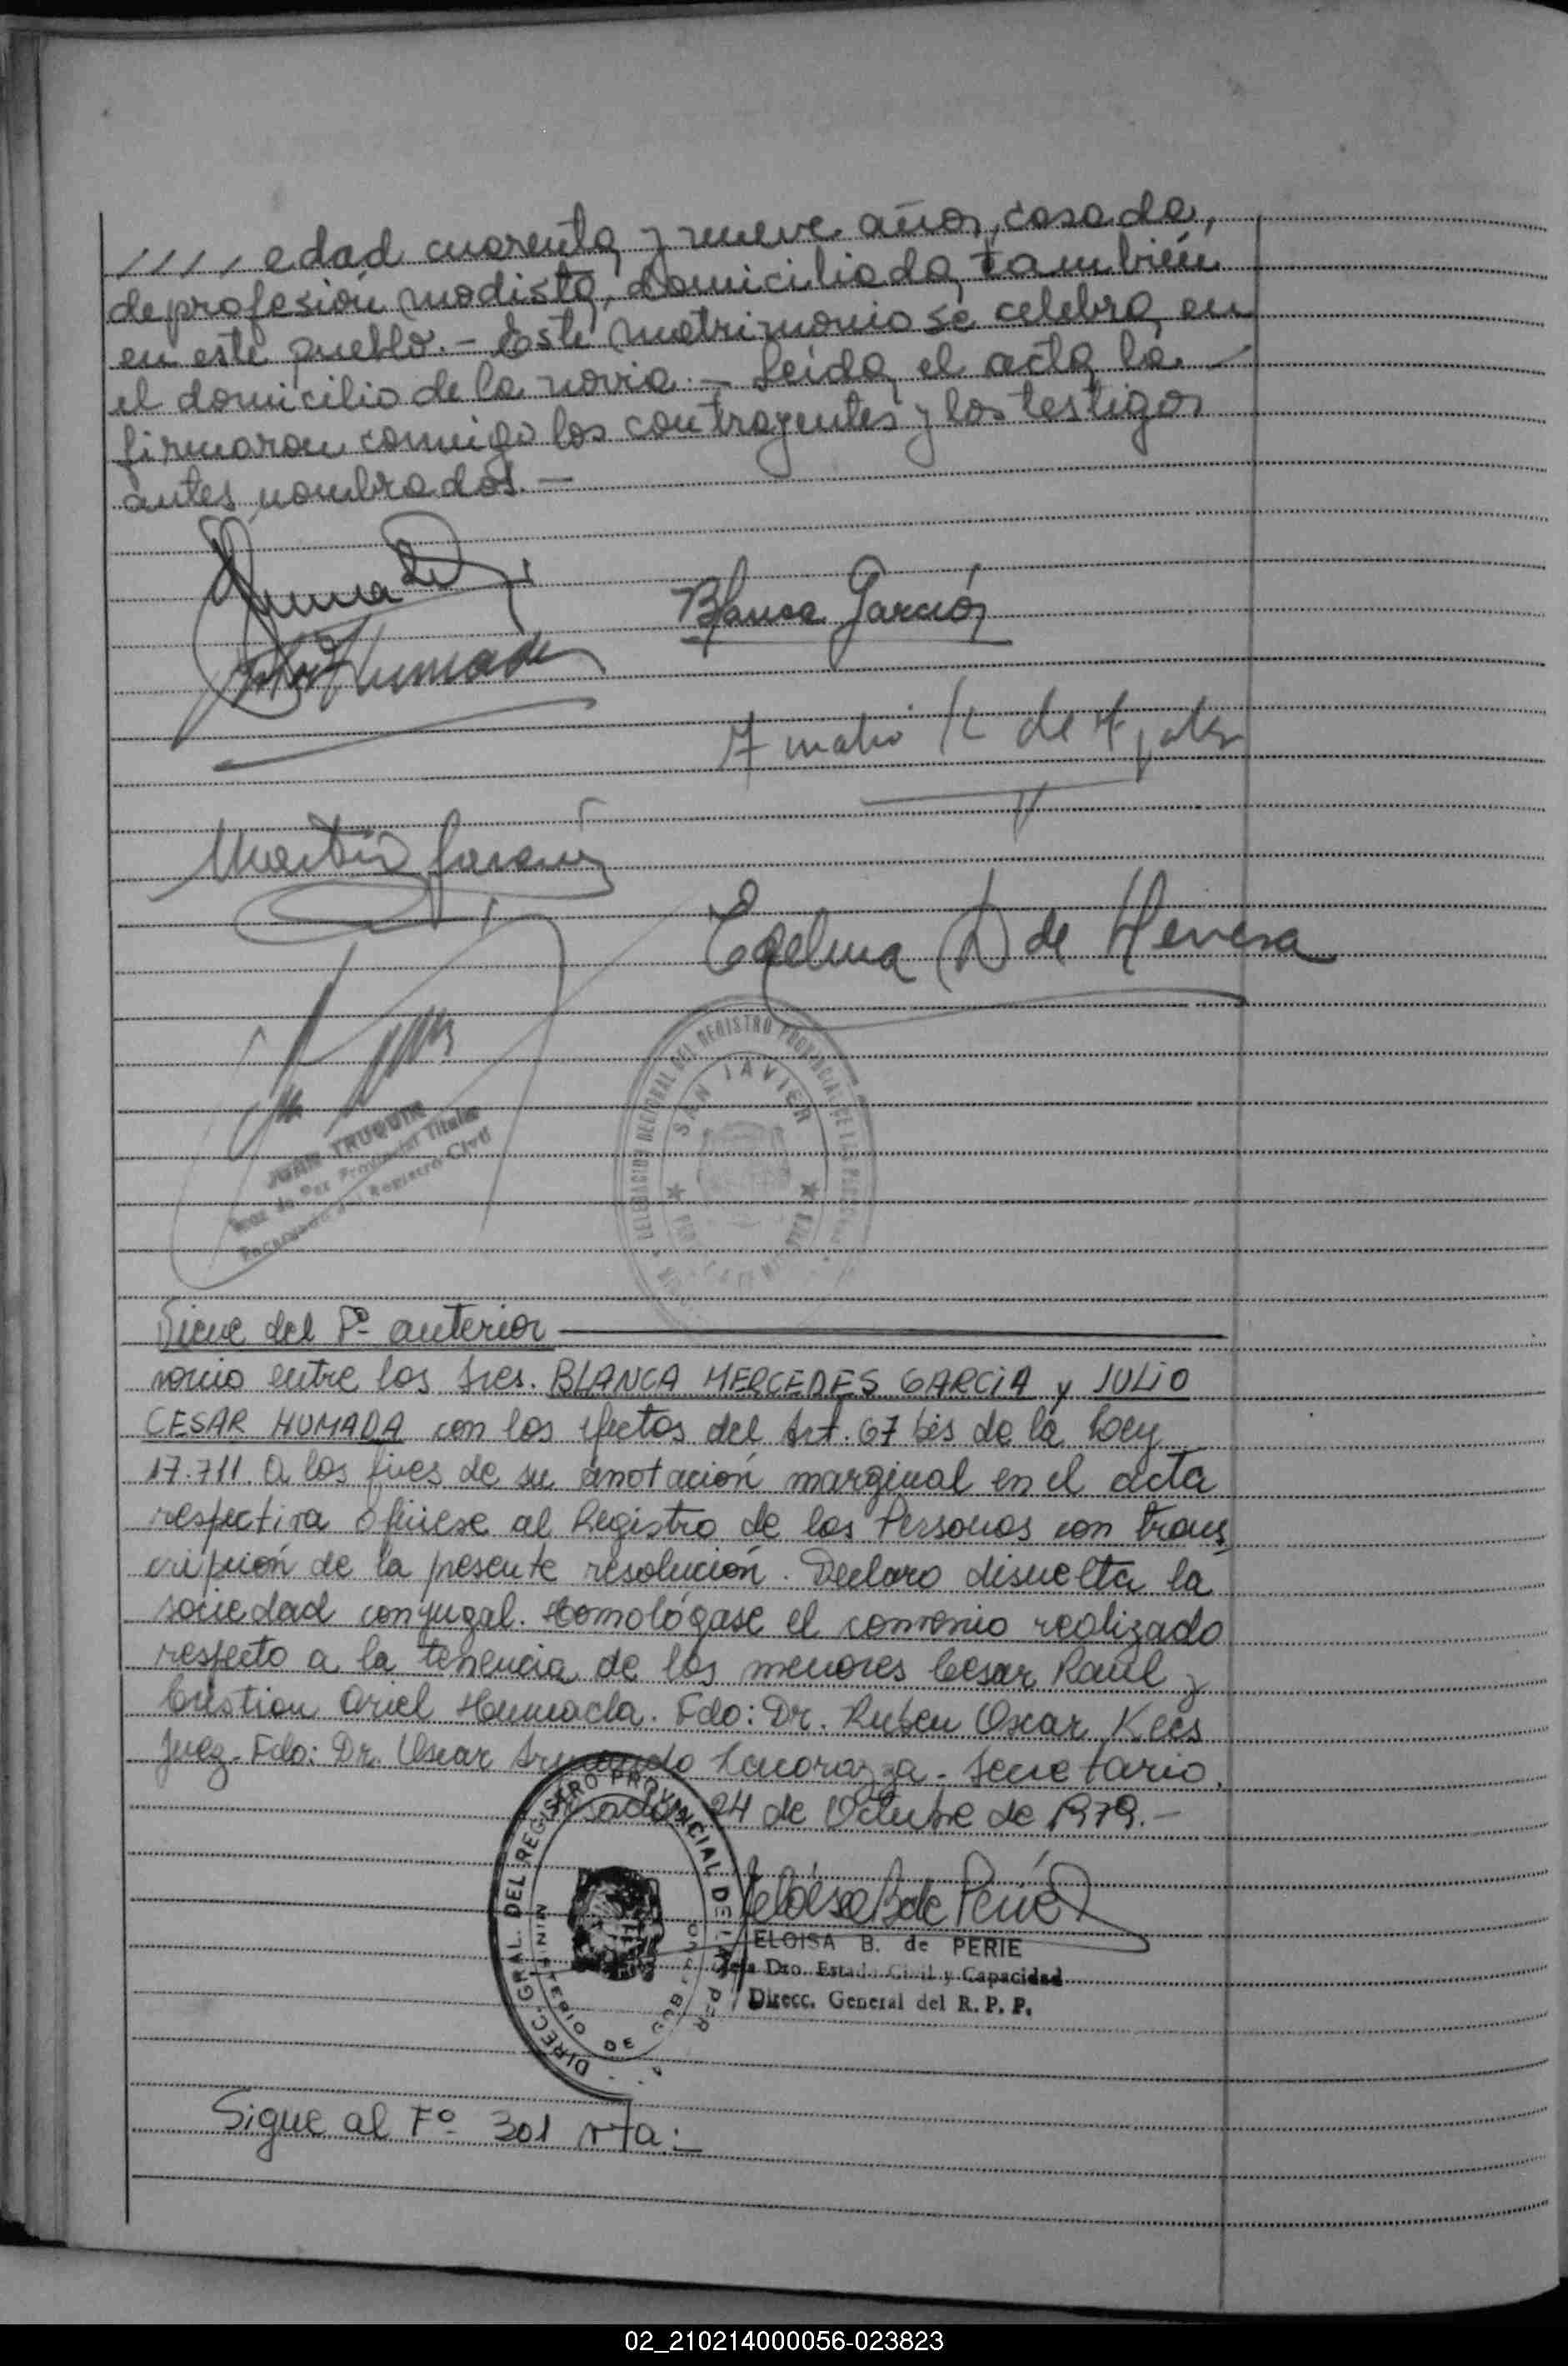 //// edad cuarenta y nueve años, casada,
de profesión modista, domiciliada también
en este pueblo.- Este matrimonio se celebra en
el domicilio de la novia.- Leída el acta la -
firmaron conmigo los contrayentes y los testigos
antes nombrados.-
Blanca García
Humada
Martín
Edelma D de Herrera
DELEGACION DEL REGISTRO PROVINCIAL DE LAS PERSONAS
SAN JAVIER
JUAN TRUQUIN
Juez de Paz Provincial Titular
Encargado del Registro Civil
Viene del Fº anterior
norcio entre los Sres. BLANCA MERCEDES GARCIA y JULIO
CESAR HUMADA con los efectos del Art. 67 bis de la Ley
17.711. A los fines de su anotación marginal en el acta
respectiva ofíciese al Registro de las Personas con trans
cripción de la presente resolución. Declaro disuelta la
sociedad conyugal. Homológase el convenio realizado
respecto a la tenencia de los menores Cesar Raúl y
Cristian Ariel Humada. Fdo: Dr. Ruben Oscar Kees
Juez. Fdo: Dr. Oscar Armando - Secretario.
Posadas 24 de Octubre de 1979.-
DIREC. GRAL. DEL REGISTRO PROVINCIAL DE LAS PER
MINISTERIO DE GOBIERNO
Eloisa B de Perié
ELOISA B. de PERIE
Jefa Dto. Estado Civil y Capacidad
Direcc. General del R. P. P.
Sigue al Fº 301 vta:-
02_210214000056-023823